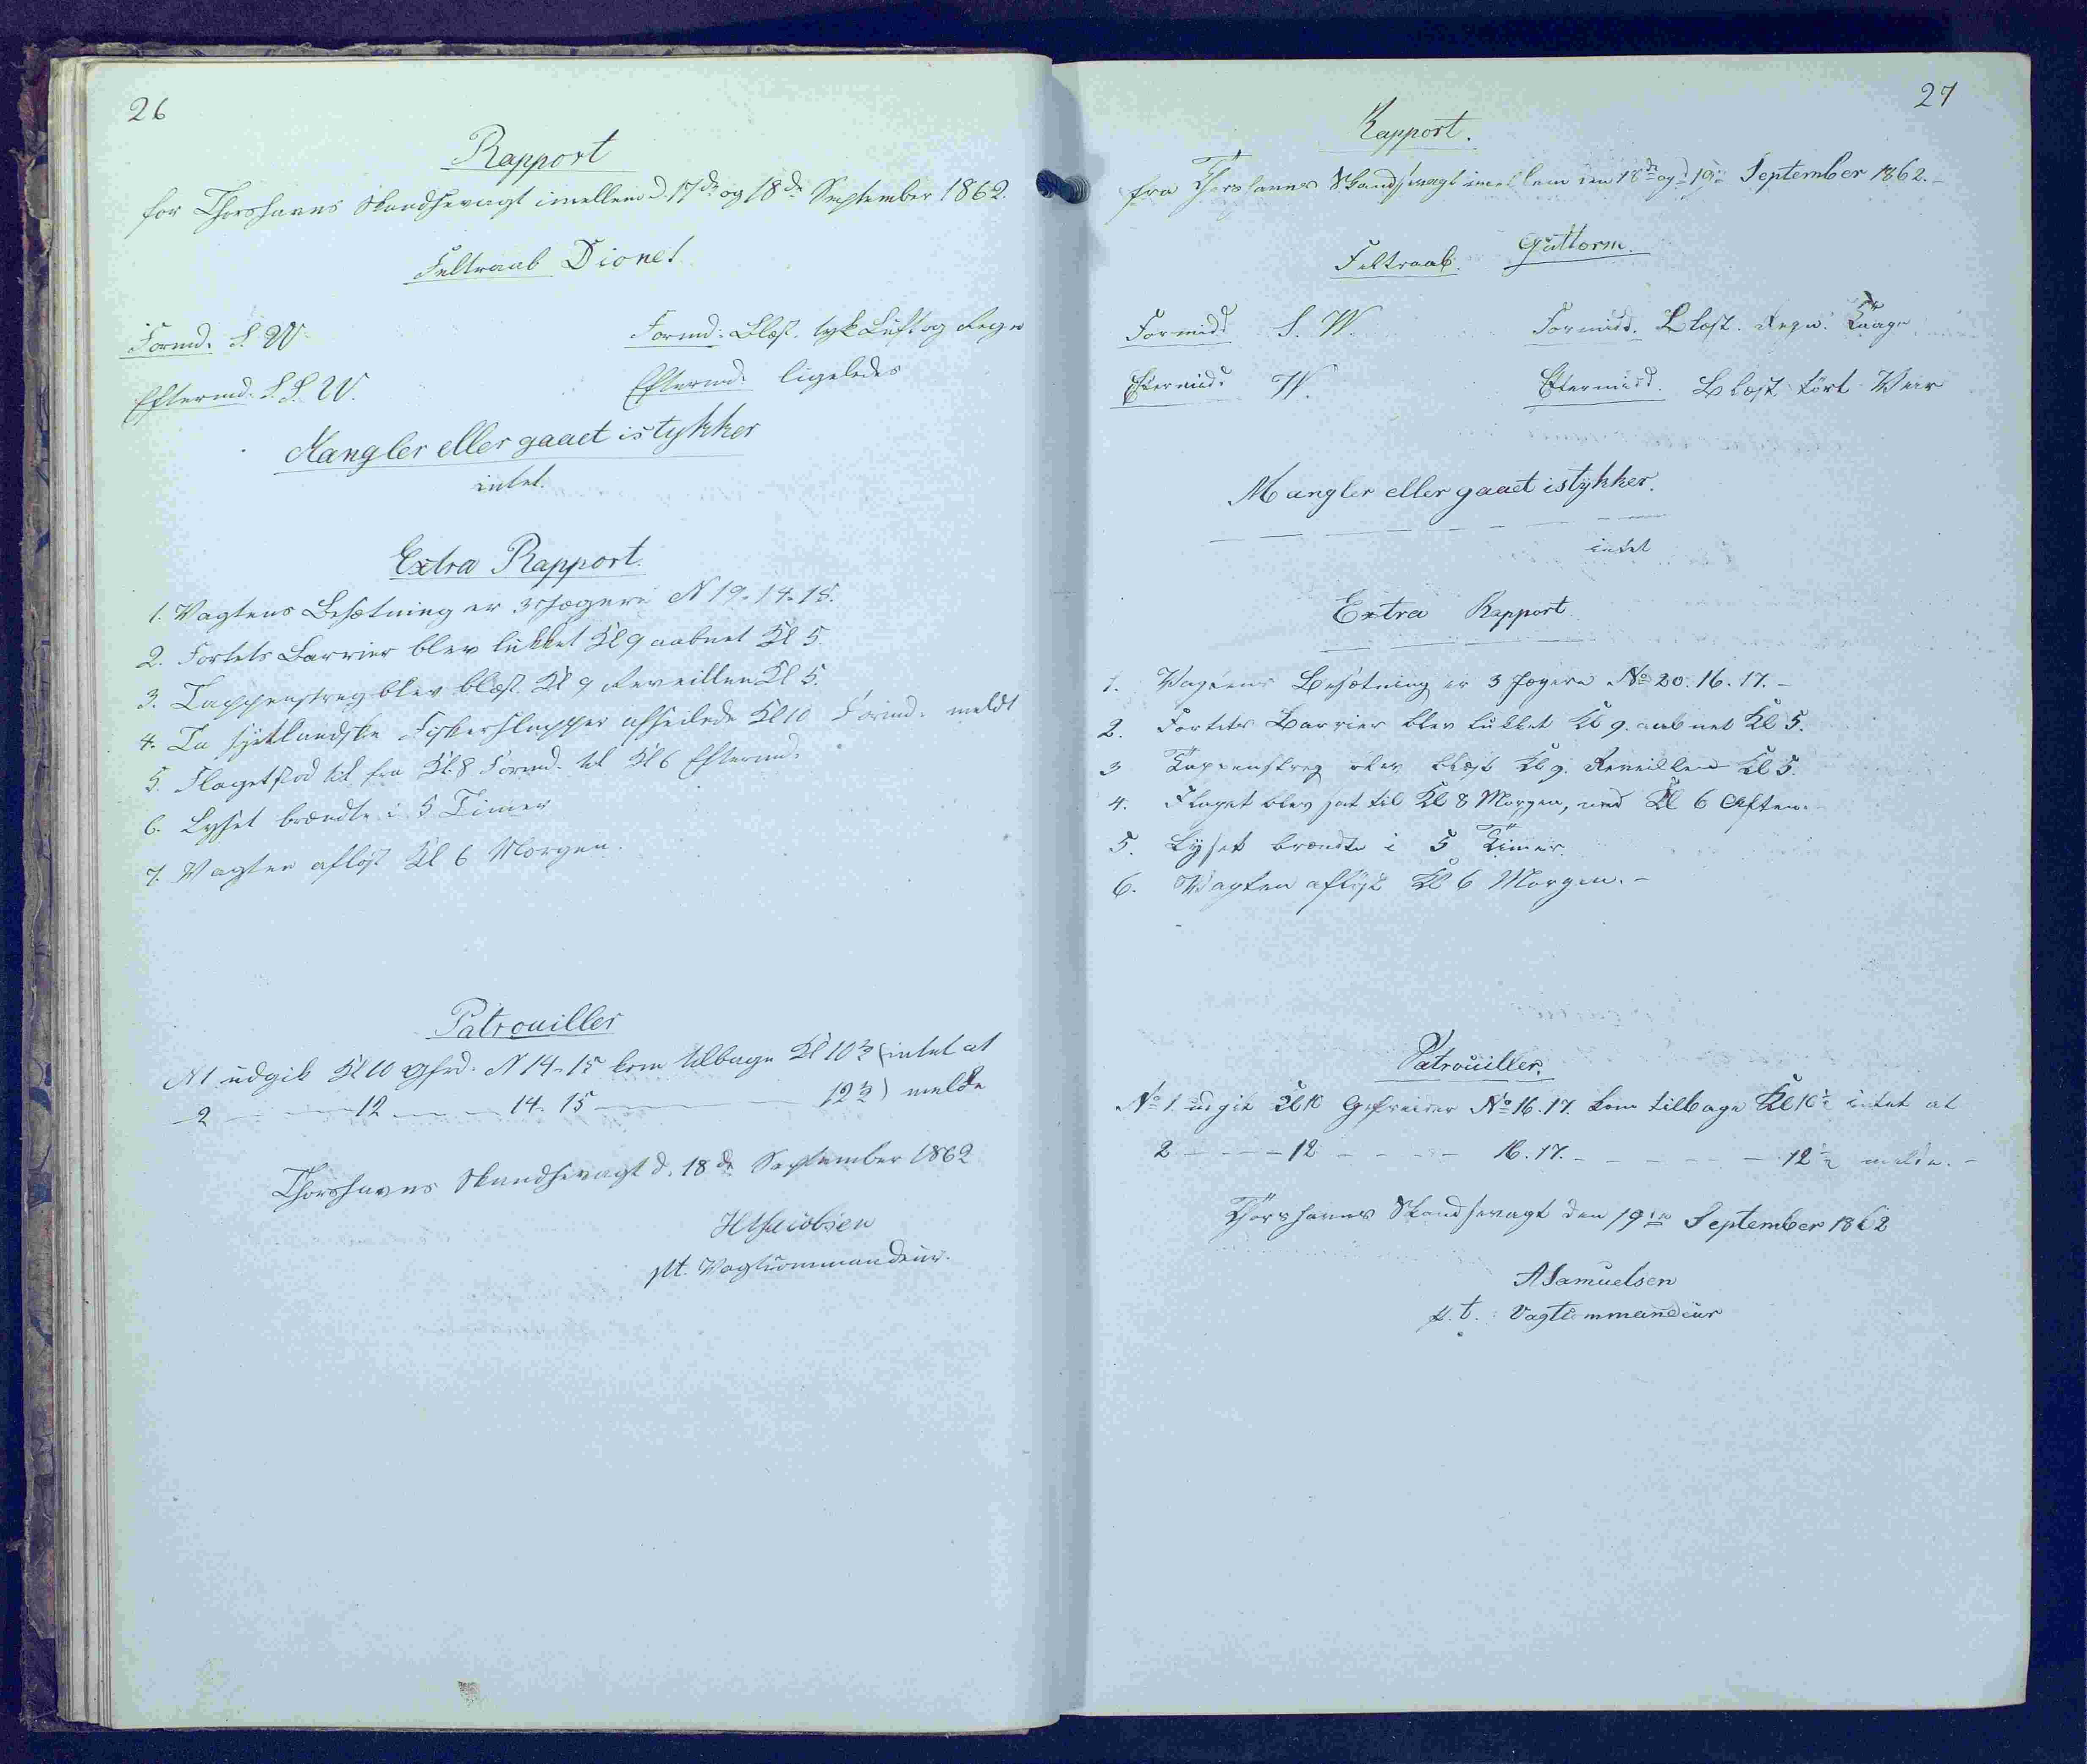 26
Rapport
for Thorshavns Skandsevagt imellem d. 17de og 18de September 1862.
Feltraab Dionet
Formd. S. W.
Formd: Blæst, tyk Luft og Regn
Eftermd. S. S. W.
Eftermd. ligeledes
Mangler eller gaaet istykker
intet.
Extra Rapport.
1. Vagtens Besætning er 3 Jægere N 19. 14. 15.
2. Fortets Barrier blev lukket Kl 9 aabnet Kl 5.
3. Tappenstreg blev blæst. Kl 9 Reveillen Kl 5.
4. To hjetlandske Fiskerslupper afseilede Kl 10 Formd. meldt
5. Flaget stod til fra Kl. 8 Formd. til Kl 6 Eftermd.
6. Lyset brændte i 5 Timer
7. Vagten afløst Kl 6 Morgen.
Patrouiller
N 1 udgik Kl 10 Gfrd. N 14. 15 kom tilbage Kl 10½ (intet at
2 — 12 — 14. 15 — 12½) melde
Thorshavns Skandsevagt d. 18de September 1862
HJacobsen
pt. Vagtcommandeur.
27
Rapport.
fra Thorshavns Skandsevagt imellem den 18de og 19de September 1862.-
Feltraab. Guttorm.
Formidd. S. W.
Formidd. Blæst. Regn. Taage
Eftermidd. W.
Eftermidd. Blæst tørt Veir
Mangler eller gaaet istykker.
intet
Extra Rapport
1. Vagtens Besætning er 3 Jægere No 20. 16. 17. -
2. Fortets Barrier blev lukket Kl 9. aabnet Kl 5.
3 Tappenstreg blev blæst Kl 9. Reveillen Kl 5.
4. Flaget blev sat til Kl 8 Morgen, ned Kl 6 Aften. -
5. Lyset brændte i 5 Timer.
6. Vagten afløst Kl 6 Morgen. -
Patrouiller.
No 1. udgik Kl 10 Gefreider No 16. 17. kom tilbage Kl 10½ intet at
2 - - - - 12 - - - - - 16. 17. - - - - - - 12½ melde. -
Thorshavns Skandsevagt den 19de September 1862
ASamuelsen
p. t. Vagtcommandeur